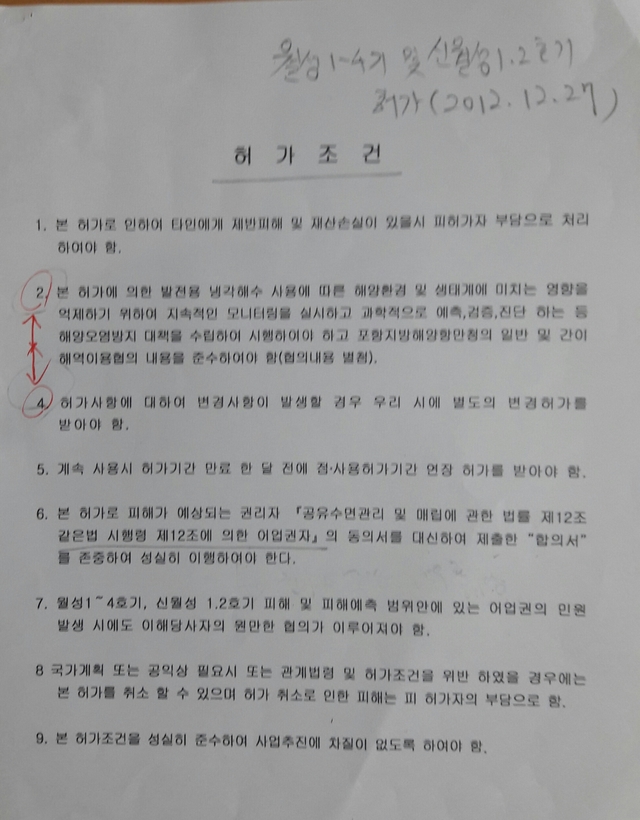 월성1-4기 및 신월성1.2호기
허가(2012.12.27)
허 가 조 건
1. 본 허가로 인하여 타인에게 제반피해 및 재산손실이 있을시 피허가자 부담으로 처리
하여야 함.
2. 본 허가에 의한 발전용 냉각해수 사용에 따른 해양환경 및 생태계에 미치는 영향을
억제하기 위하여 지속적인 모니터링을 실시하고 과학적으로 예측,검증,진단 하는 등
해양오염방지 대책을 수립하여 시행하여야 하고 포항지방해양항만청의 일반 및 간이
해역이용협의 내용을 준수하여야 함(협의내용 별첨).
4. 허가사항에 대하여 변경사항이 발생할 경우 우리 시에 별도의 변경허가를
받아야 함.
5. 계속 사용시 허가기간 만료 한 달 전에 점·사용허가기간 연장 허가를 받아야 함.
6. 본 허가로 피해가 예상되는 권리자 『공유수면관리 및 매립에 관한 법률 제12조
같은법 시행령 제12조에 의한 어업권자』의 동의서를 대신하여 제출한 "합의서"
를 존중하여 성실히 이행하여야 한다.
7. 월성1~4호기, 신월성 1.2호기 피해 및 피해예측 범위안에 있는 어업권의 민원
발생 시에도 이해당사자의 원만한 협의가 이루어져야 함.
8 국가계획 또는 공익상 필요시 또는 관계법령 및 허가조건을 위반 하였을 경우에는
본 허가를 취소 할 수 있으며 허가 취소로 인한 피해는 피 허가자의 부담으로 함.
9. 본 허가조건을 성실히 준수하여 사업추진에 차질이 없도록 하여야 함.